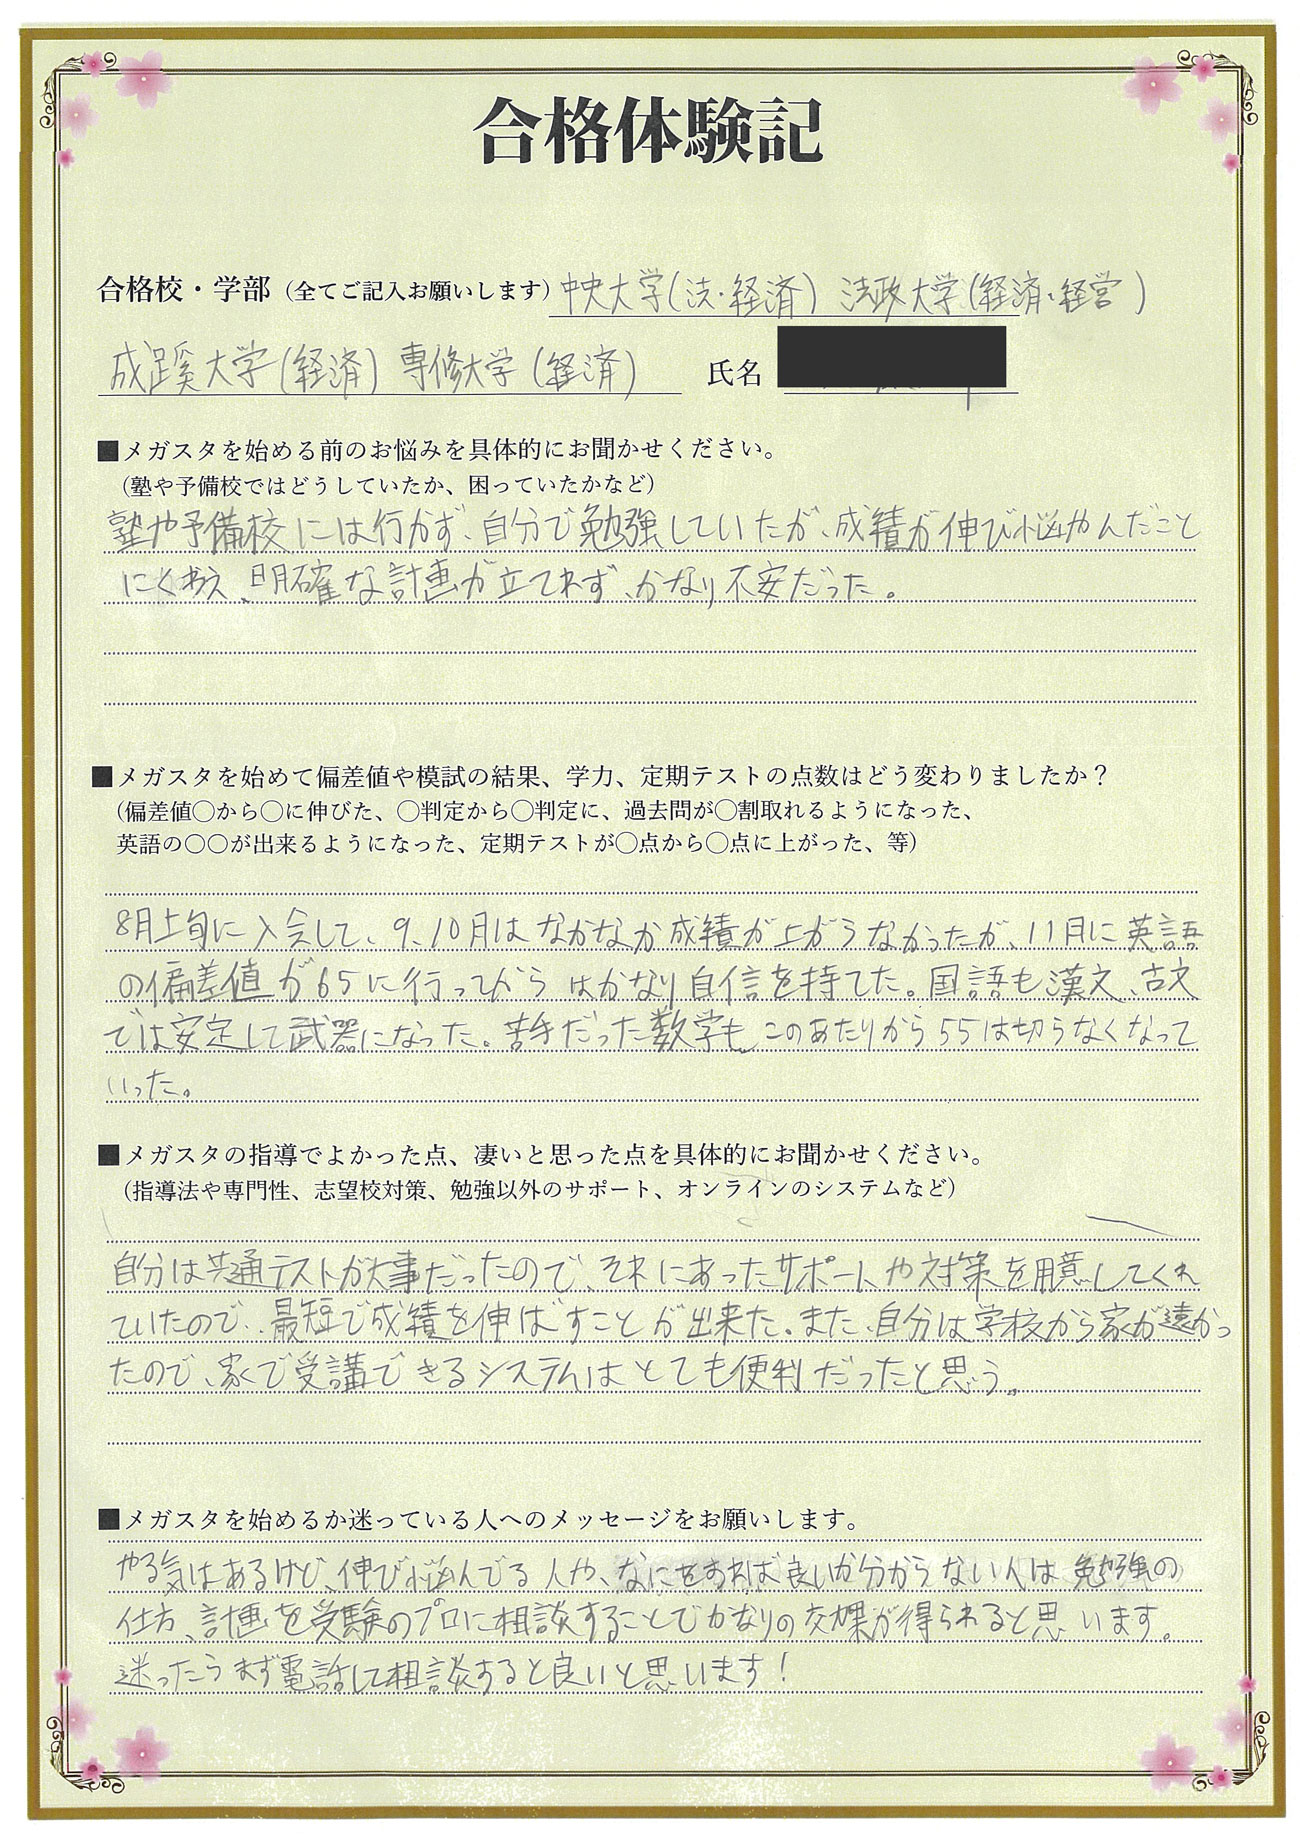 合格体験記
合格校・学部（全てご記入お願いします）中央大学(法・経済) 法政大学(経済・経営)
成蹊大学(経済) 専修大学(経済) 氏名
■メガスタを始める前のお悩みを具体的にお聞かせください。
（塾や予備校ではどうしていたか、困っていたかなど）
塾や予備校には行かず、自分で勉強していたが、成績が伸び悩やんだこと
にくわえ、明確な計画が立てれず、かなり不安だった。
■メガスタを始めて偏差値や模試の結果、学力、定期テストの点数はどう変わりましたか？
（偏差値〇から〇に伸びた、〇判定から〇判定に、過去問が〇割取れるようになった、
英語の〇〇が出来るようになった、定期テストが〇点から〇点に上がった、等）
8月上旬に入会して、9、10月はなかなか成績が上がらなかったが、11月に英語
の偏差値が65に行ってからはかなり自信を持てた。国語も漢文、古文
では安定して武器になった。苦手だった数学も このあたりから55は切らなくなって
いった。
■メガスタの指導でよかった点、凄いと思った点を具体的にお聞かせください。
（指導法や専門性、志望校対策、勉強以外のサポート、オンラインのシステムなど）
自分は共通テストが大事だったので、それにあったサポートや対策を用意してくれ
ていたので、最短で成績を伸ばすことが出来た。また、自分は学校から家が遠かっ
たので、家で受講できるシステムはとても便利だったと思う。
■メガスタを始めるか迷っている人へのメッセージをお願いします。
やる気はあるけど、伸び悩んでる人や、なにをすれば良いか分からない人は 勉強の
仕方、計画を受験のプロに相談することでかなりの効果が得られると思います。
迷ったらまず電話して相談すると良いと思います！